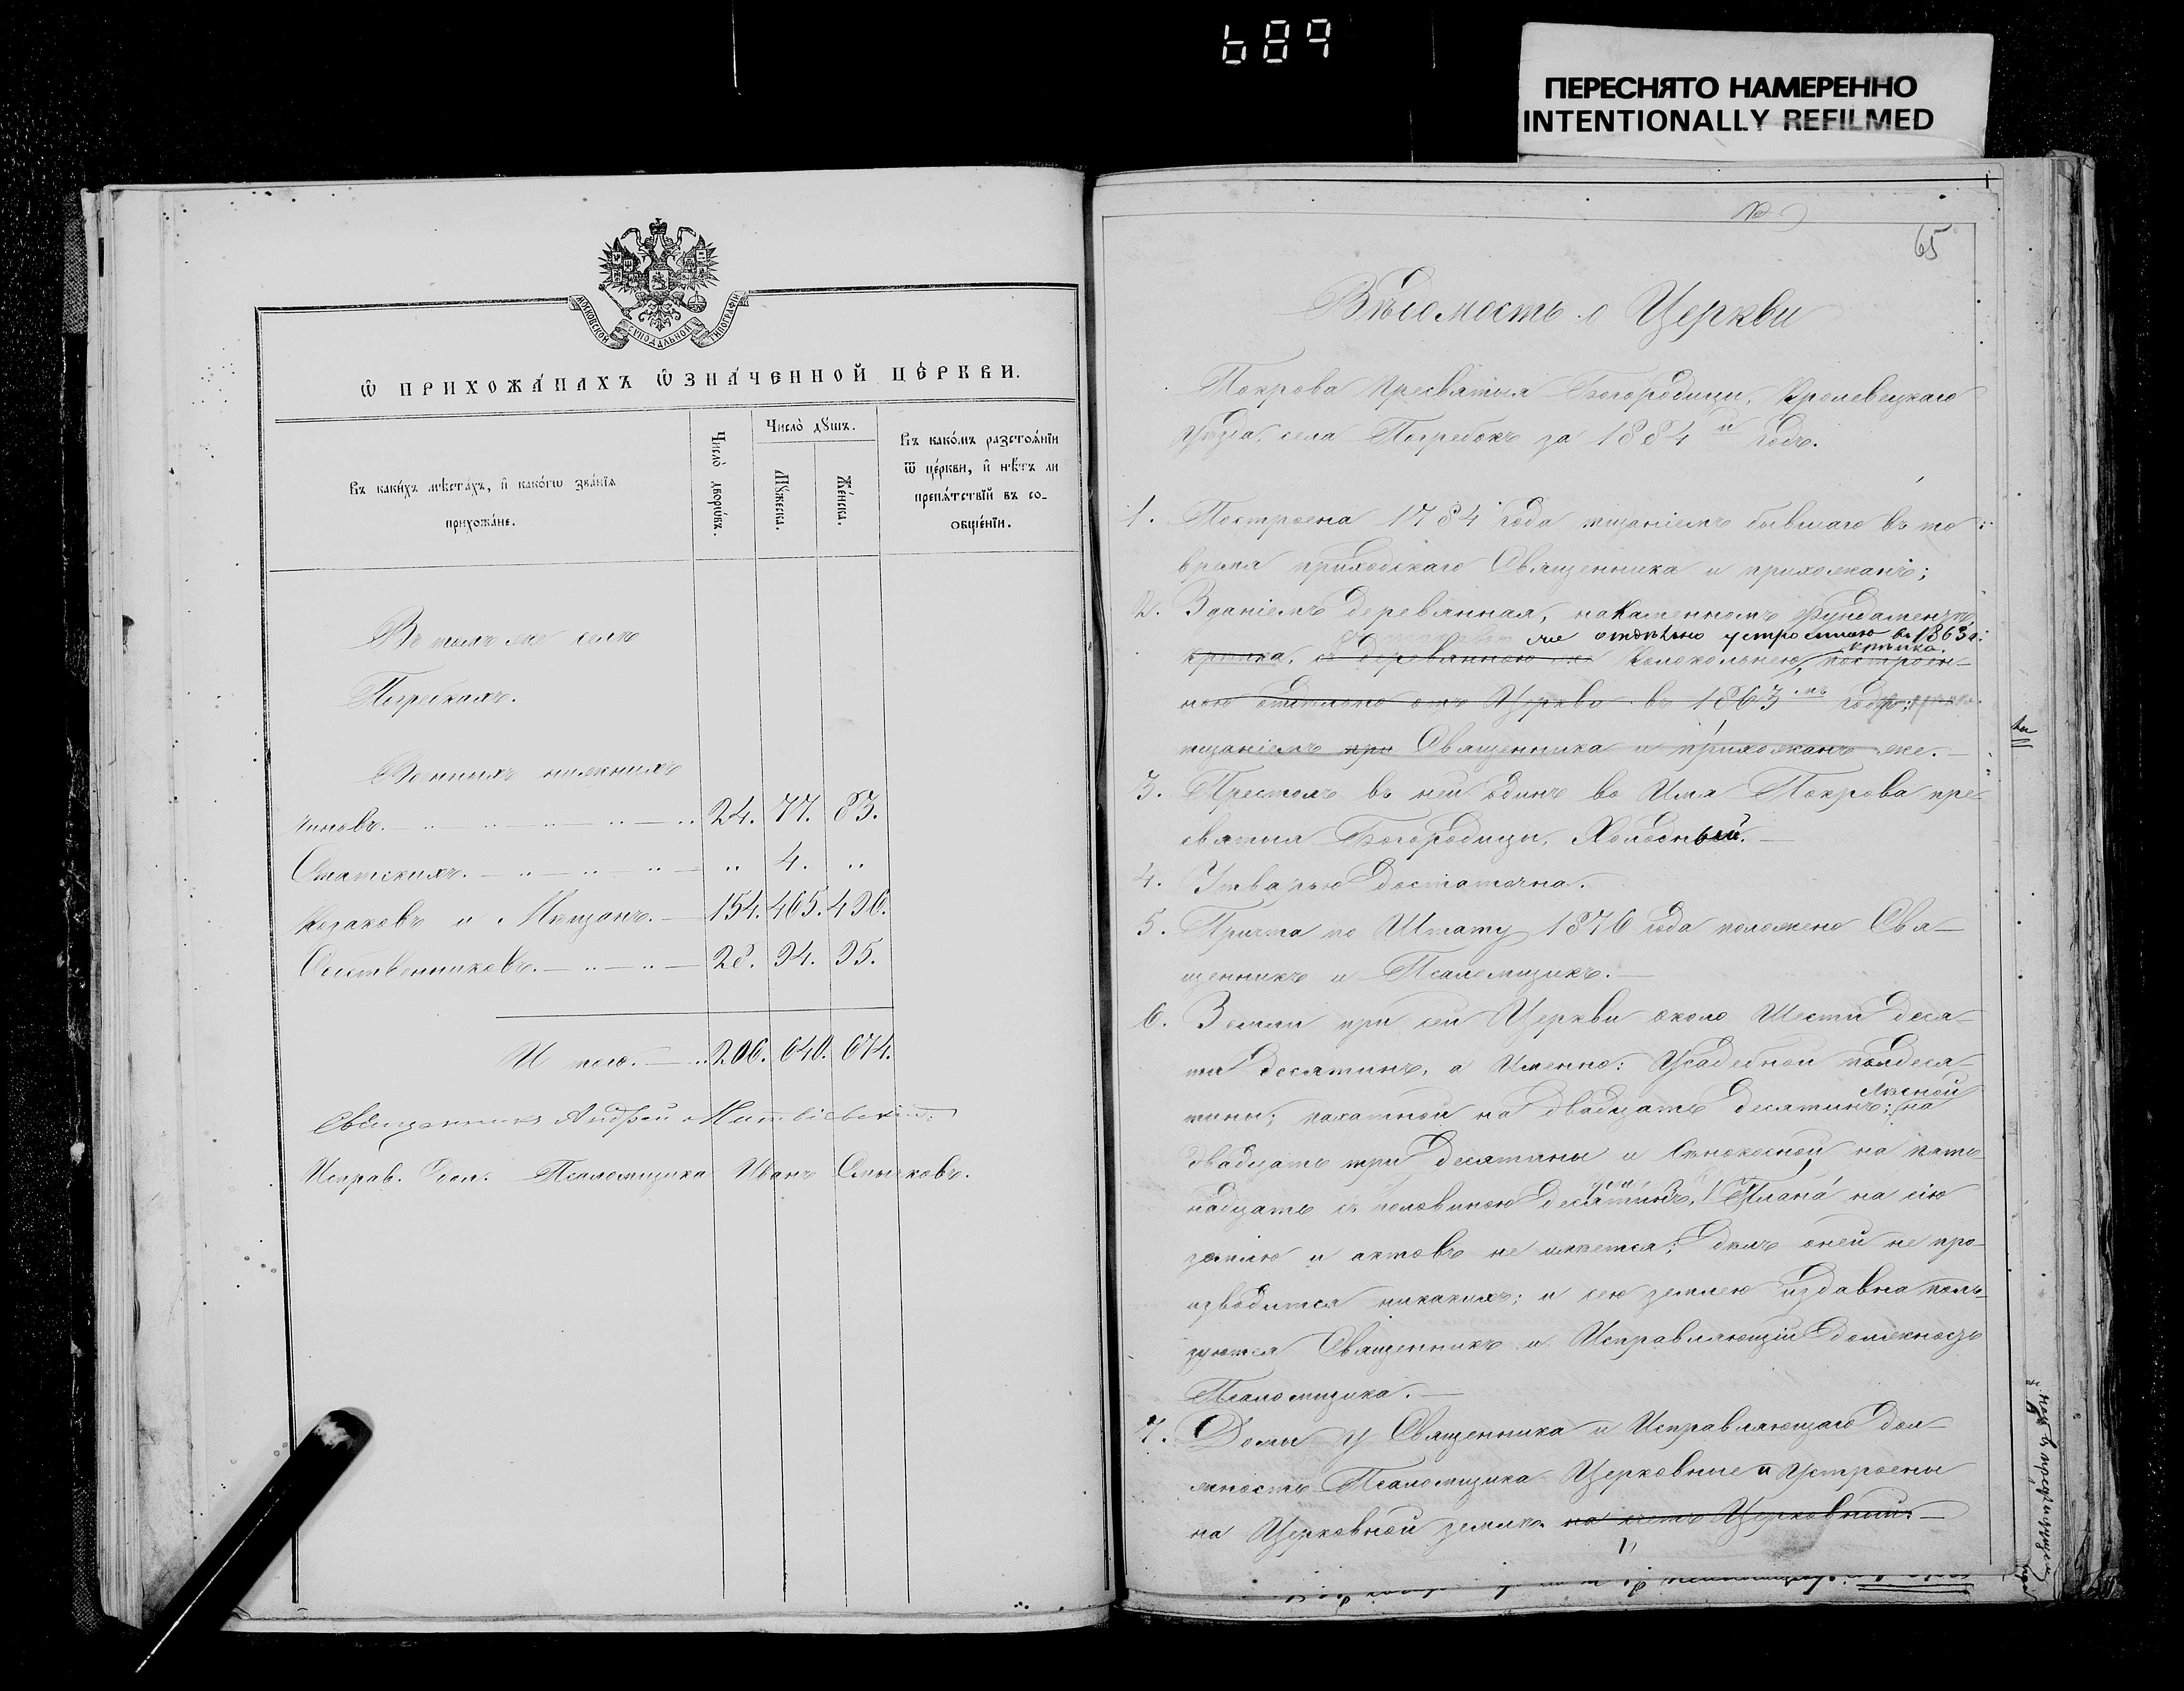 689
ПЕРЕСНЯТО НАМЕРЕННО
INTENTIONALLY REFILMED
МОСКОВСКОЙ СѴНОДАЛЬНОЙ ТИПОГРАФІИ
Ѡ ПРИХОЖА́НАХЪ ѠЗНА́ЧЕННОЙ ЦЕ́РКВИ.
Въ каки́хъ мѣста́хъ, и҆ како́гѡ зва́нїѧ прихожа́не.
Число̀ дворѡ́въ.
Число̀ дꙋшъ.
Мꙋ́жеска.
Же́нска.
Въ како́мъ разстоѧ́нїи
ѿ це́ркви, и҆ нѣ́тъ ли
препѧ́тствїй въ со-
общенїи.
Въ томъ же селѣ
Погребкахъ.
Военныхъ нижнихъ
чиновъ. 24. 77. 83.
Статскихъ. .. 4. ..
Козаковъ и Мѣщанъ. 154. 465. 496.
Собственниковъ. 28. 94. 95.
И того. 206. 640. 674.
Священникъ Андрей
Исправ. дол. Псаломщика Иванъ Смычковъ.
65
Вѣдомость о Церкви
Покрова Пресвятыя Богородицы, Кролевецкаго
Уѣзда, села Погребокъ за 1884й годъ.
1. Построена 1784 года тщаніемъ бывшаго въ то
время приходскаго Священника и прихожанъ;
2. Зданіемъ деревянная, на каменномъ фундаментѣ,
же отдѣльно устроенною въ 1863 г.
крѣпка, съ деревянною же колокольнею, построен-
крѣпка.
ною отдѣльно отъ Церкви въ 1863мъ году;
тщаніемъ при Священника и прихожанъ же.
3. Престолъ въ ней одинъ во Имя Покрова пре-
святыя Богородицы, Холодный.
4. Утварью достаточна.
5. Причта по Штату 1876 года положено Свя-
щенникъ и Псаломщикъ.
6. Земли при сей Церкви около Шести деся-
ти десятинъ, а Именно: Усадебной полдеся-
тины; пахатной на двадцать десятинъ; на
лѣсной
двадцать три десятины и Сѣнокосной на пять-
надцать съ половиною десятинъ. Плана на сію
землю и актовъ не имѣется; дѣлъ оней не про-
изводится никакихъ; и сею землею издавна поль-
зуются Священникъ и Исправляющій должность
Псаломщика.
7. Домы у Священника и Исправляющаго дол-
жность Псаломщика Церковные и Устроены
на Церковной землѣ. на счетъ Церковный.